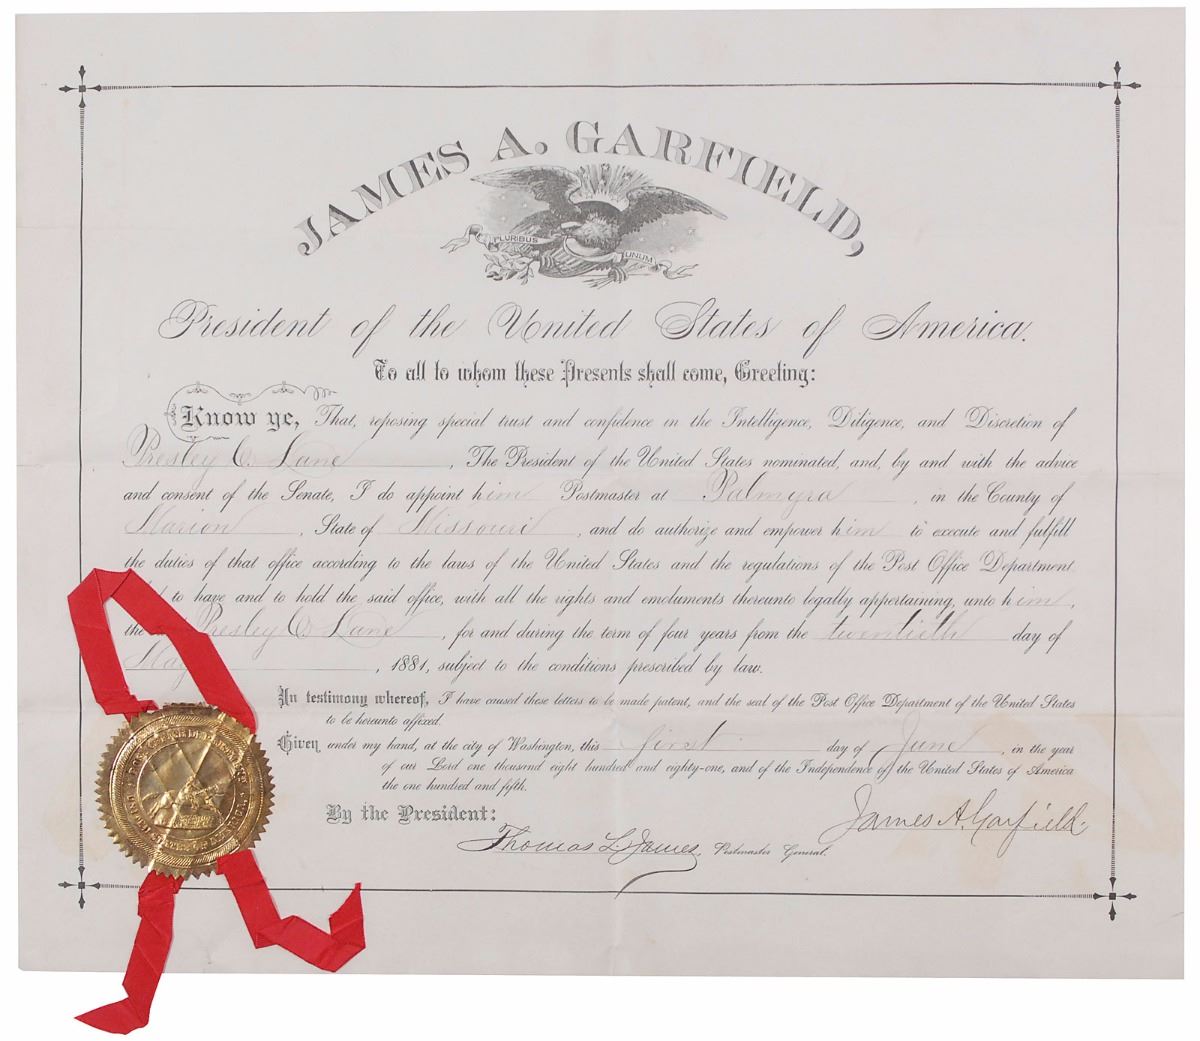 JAMES A. GARFIELD,
PLURIBUS UNUM
President of the United States of America.
To all to whom these Presents shall come, Greeting:
Know ye, That, reposing special trust and confidence in the Intelligence, Diligence, and Discretion of
Presley C. Lane, The President of the United States nominated, and, by and with the advice
and consent of the Senate, I do appoint him Postmaster at Palmyra, in the County of
Marion, State of Missouri, and do authorize and empower him to execute and fulfill
the duties of that office according to the laws of the United States and the regulations of the Post Office Department
to have and to hold the said office, with all the rights and emoluments thereunto legally appertaining, unto him,
the Presley C. Lane, for and during the term of four years from the twentieth day of
May, 1881, subject to the conditions prescribed by law.
In testimony whereof, I have caused these letters to be made patent, and the seal of the Post Office Department of the United States
to be hereunto affixed.
Given under my hand, at the city of Washington, this first day of June, in the year
of our Lord one thousand eight hundred and eighty-one, and of the Independence of the United States of America
the one hundred and fifth.
By the President:
James A. Garfield
Thomas L. James, Postmaster General.
POST OFFICE DEPARTMENT
UNITED STATES OF AMERICA